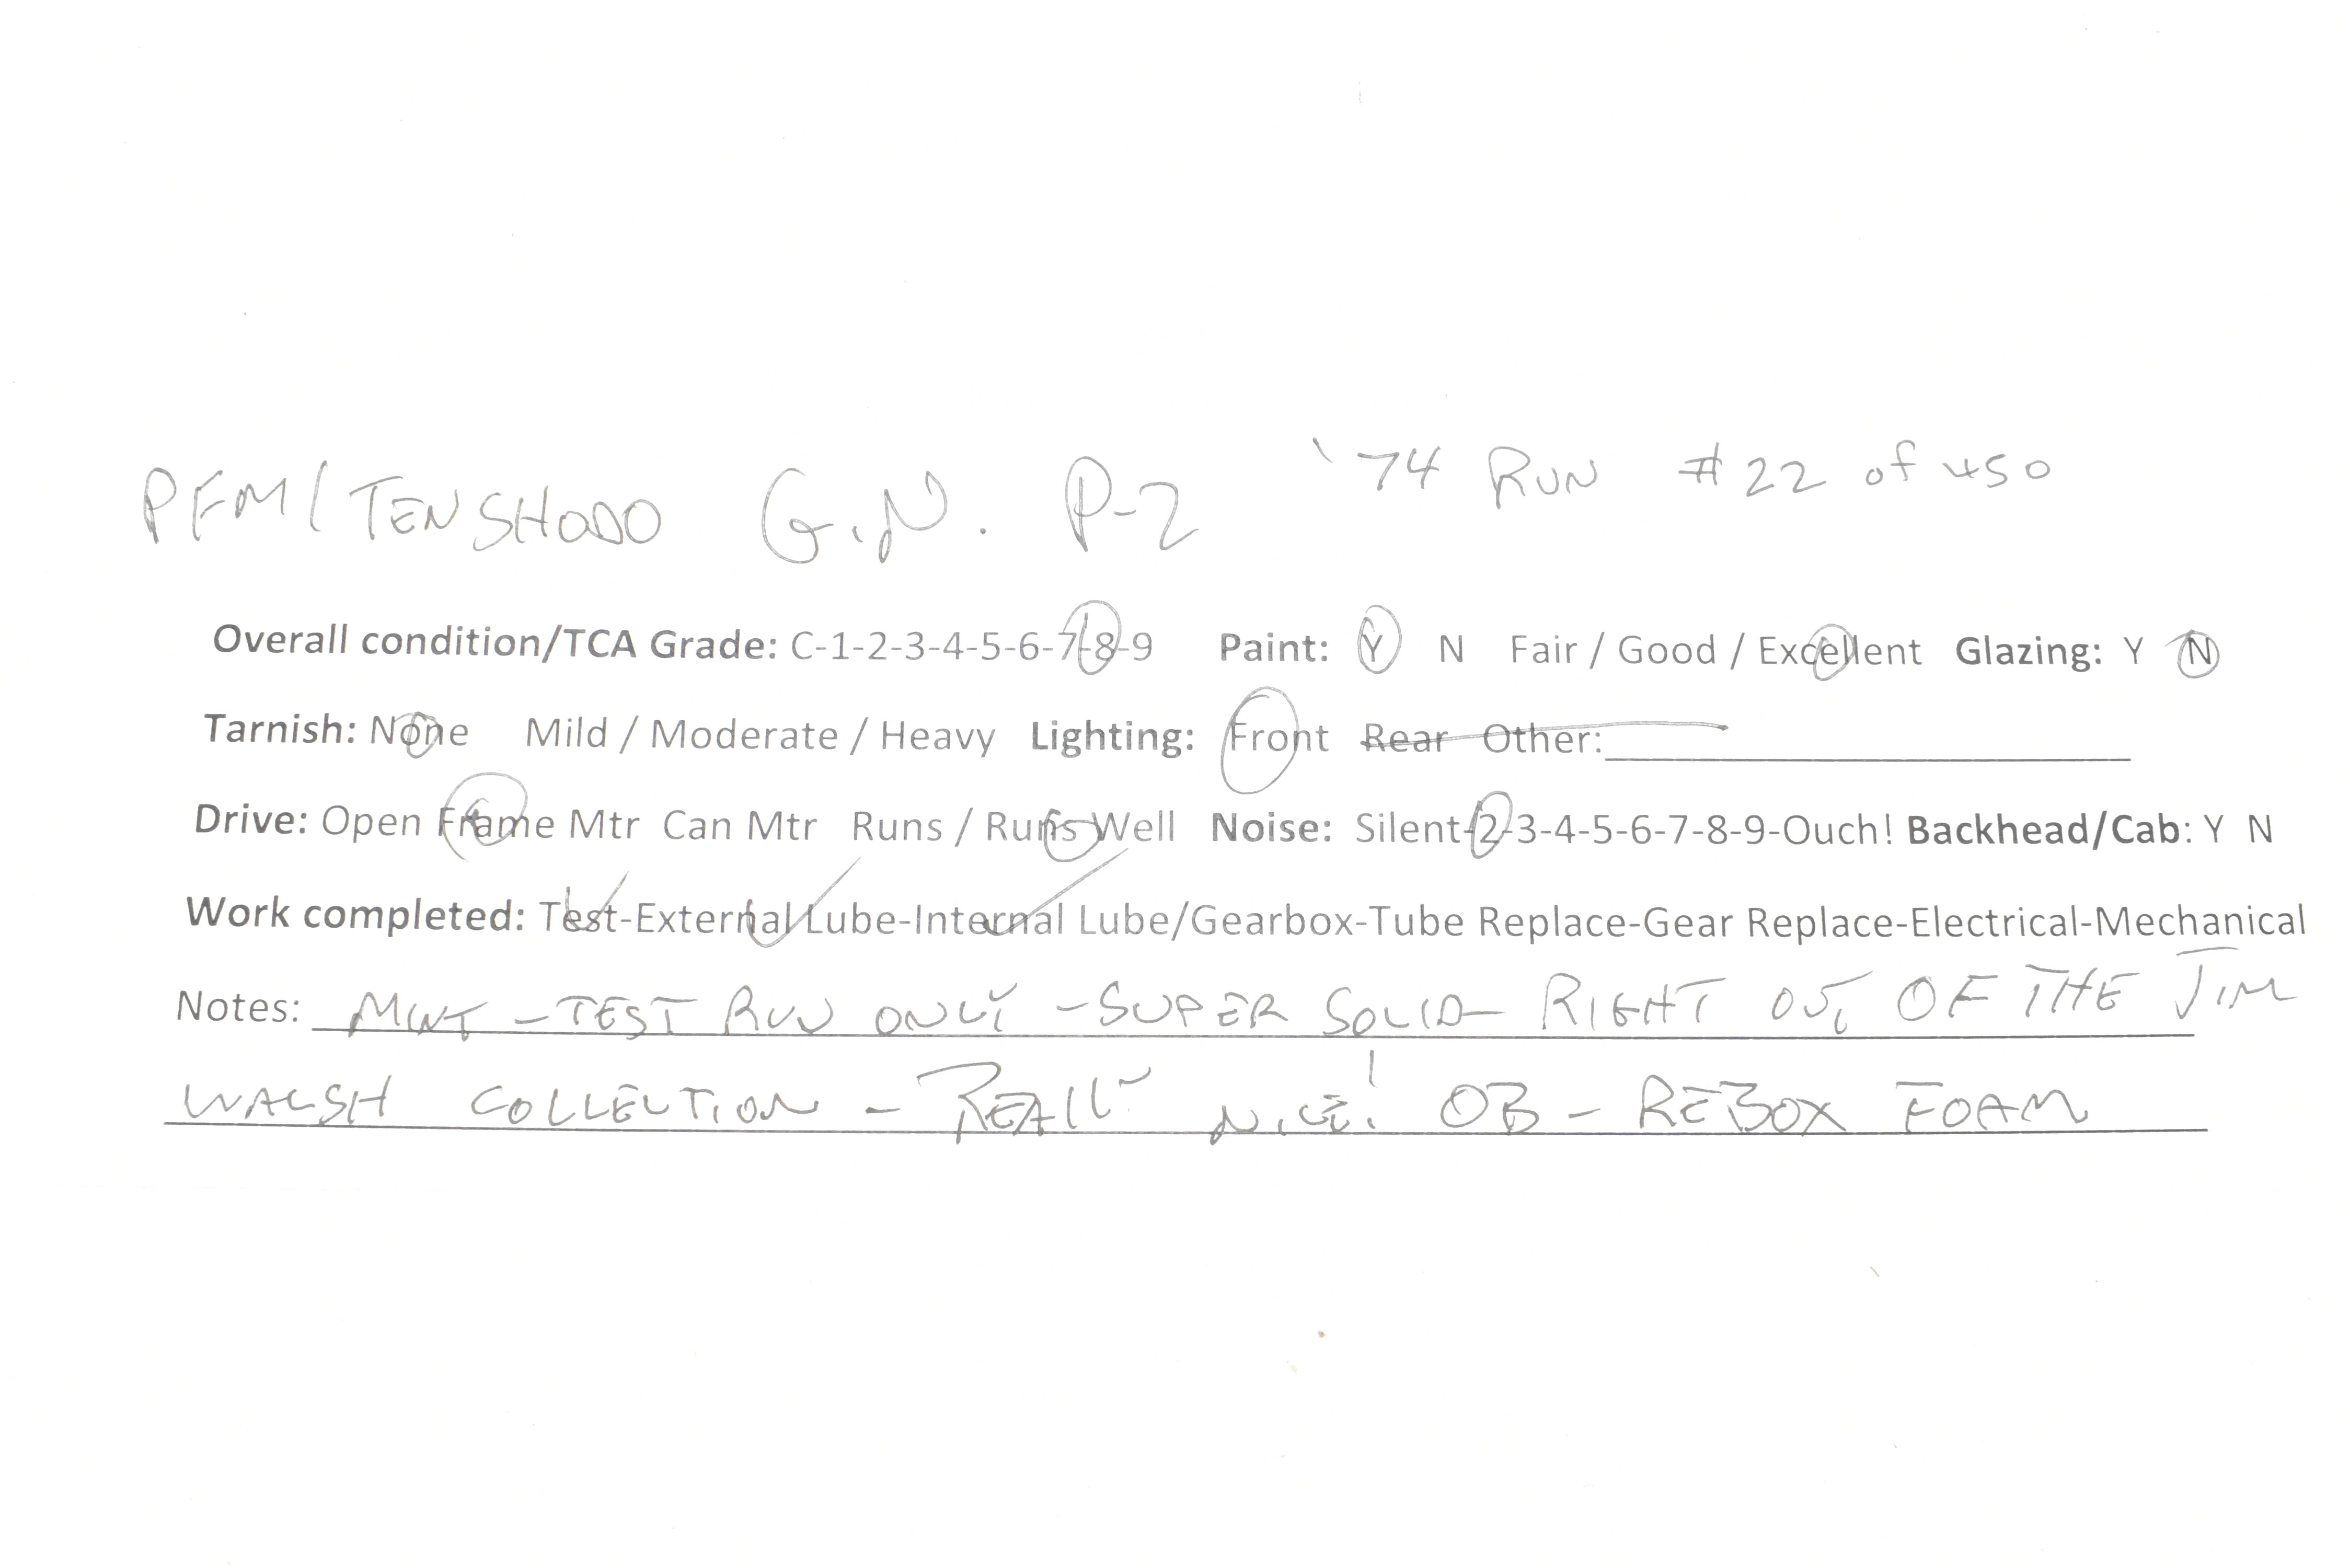 PFM/TENSHODO G.N. P-2 '74 RUN #22 of 450
Overall condition/TCA Grade: C-1-2-3-4-5-6-7-8-9 Paint: Y N Fair / Good / Excellent Glazing: Y N
Tarnish: None Mild / Moderate / Heavy Lighting: Front Rear Other:
Drive: Open Frame Mtr Can Mtr Runs / Runs Well Noise: Silent-2-3-4-5-6-7-8-9-Ouch! Backhead/Cab: Y N
Work completed: Test-External Lube-Internal Lube/Gearbox-Tube Replace-Gear Replace-Electrical-Mechanical
Notes: MINT - TEST RUN ONLY - SUPER SOLID - RIGHT OUT OF THE JIM
WALSH COLLECTION - REALLY NICE! OB - REBOX FOAM